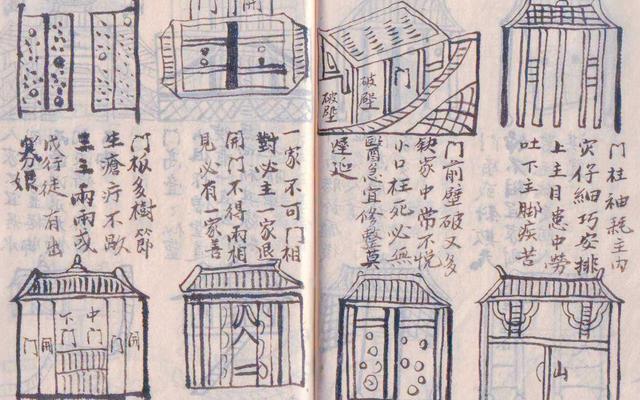 門柱補耗主内
灾仔細巧安排
上主目患中勞
吐下主脚疾苦
門前壁破又多
缺家中常不悦
小口枉死必無
醫急宜修整莫
遲延
門
破壁
破壁
一家不可門相
對必主一家退
開門不得兩相
見必有一家善
門板多樹節
生瘡疔不歇
三三兩兩或
成行徒有出
寡娘
山
開門
中門
下門
開門